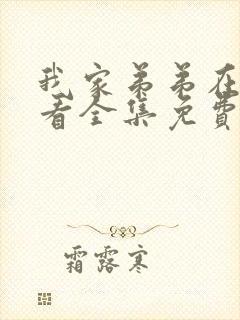 我家弟弟在
看全集免费
霜露寒